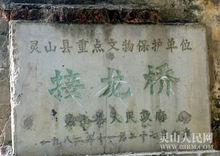 灵山县重点文物保护单位
接龙桥
灵山县人民政府
一九八二年十一月二十七日
灵山人民网